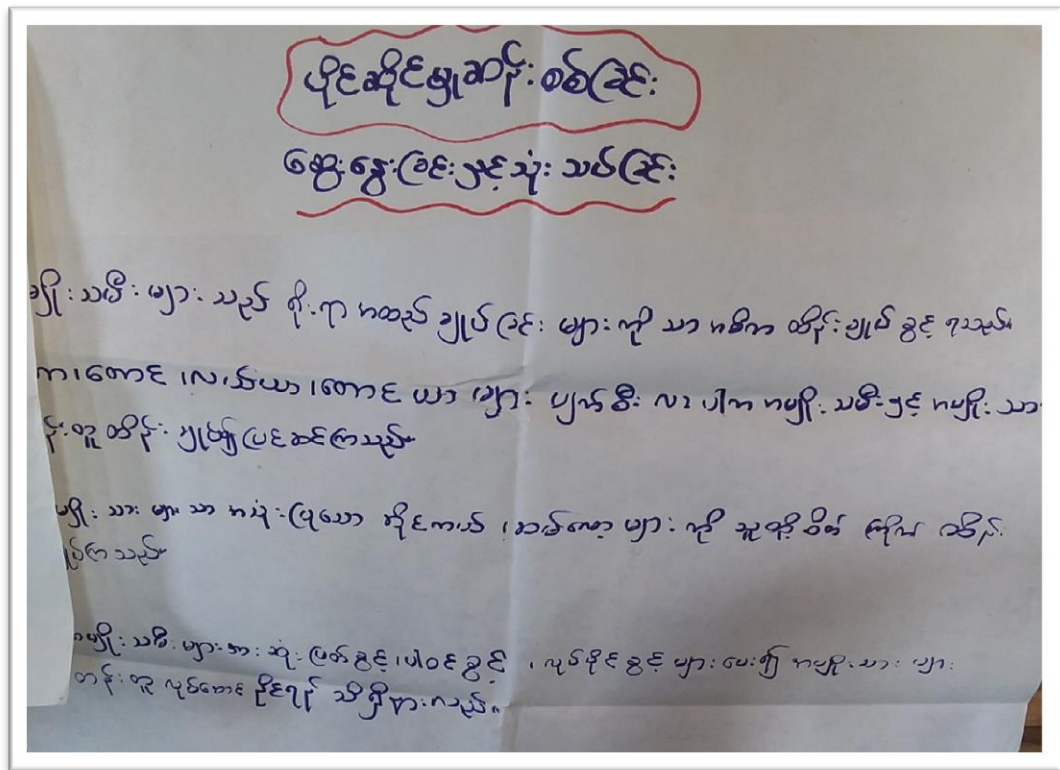 ပိုင်ဆိုင်မှုဆန်းစစ်ခြင်း
ဆွေးနွေးခြင်းနှင့်သုံးသပ်ခြင်း
မျိုးသမီးများသည် ရိုးရာအထည်ချုပ်ခြင်းများကိုသာ အဓိက ထိန်းချုပ်ခွင့်ရသည်။
တောင် ၊လယ်ယာ ၊တောင်ယာများ ပျက်စီးလာပါက အမျိုးသမီးနှင့် အမျိုးသား
န်းတူ ထိန်းချုပ်၍ ပြင်ဆင်ကြသည်။
မျိုးသားများသာ အသုံးပြုသော ဆိုင်ကယ် ၊ များကို သူတို့စိတ်ကြိုက် ထိန်း
ချုပ်ကြသည်။
အမျိုးသမီးများအား ဆုံးဖြတ်ခွင့် ၊ပါဝင်ခွင့် ၊ လုပ်ပိုင်ခွင့်များပေး၍ အမျိုးသားများ
တန်းတူ လုပ်ဆောင်နိုင်ရန် သိရှိနားလည်။